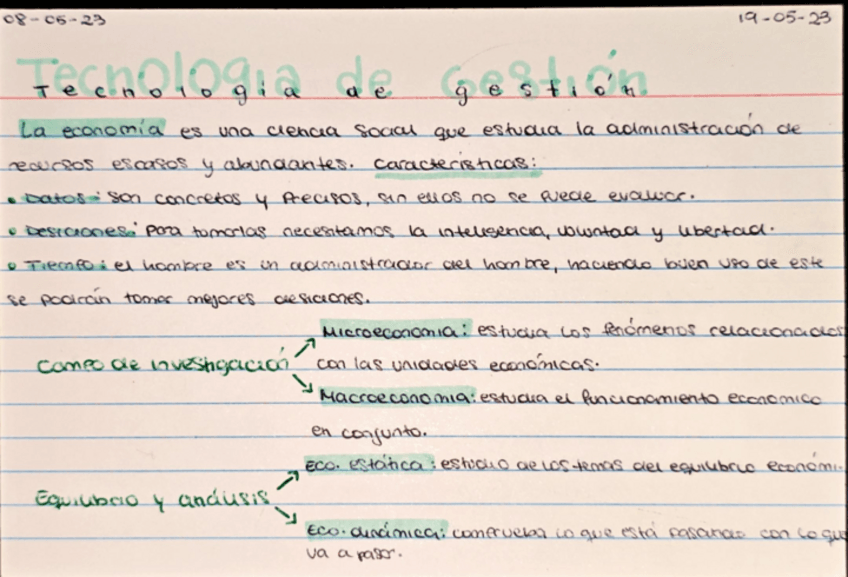 08-05-23
19-05-23
Tecnologia de Gestión
Tecnologia de gestión
La economía es una ciencia social que estudia la administración de
recursos escasos y abundantes. Características:
• Datos: son concretos y precisos, sin ellos no se puede evaluar.
• Desiciones: para tomarlas necesitamos la inteligencia, voluntad y libertad.
• Tiempo: el hombre es un administrador del hombre, haciendo buen uso de este
se podrán tomar mejores desiciones.
Microeconomia: estudia los fenómenos relacionados
Campo de investigación con las unidades económicas.
Macroeconomia: estudia el funcionamiento economico
en conjunto.
Eco. estática: estudio de los temas del equilibrio económi.
Equilibrio y análisis
Eco. dinámica: comprueba lo que está pasando con lo que
va a pasar.